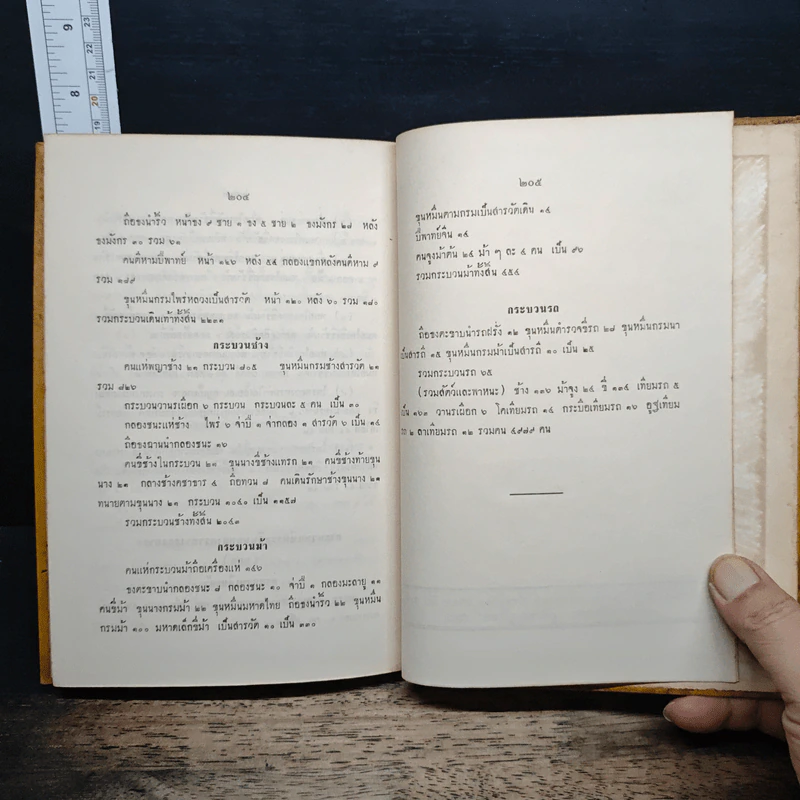 9
8
23
22
21
20
19
๒๐๔
ถือธงนำริ้ว หน้าธง ๙ ชาย ๑ ธง ๕ ชาย ๒ ธงมังกร ๒๗ หลัง
ธงมังกร ๑๐ รวม ๖๑
คนตีหามปี่พาทย์ หน้า ๑๒๖ หลัง ๕๔ กลองแขกหลังคนตีหาม ๙
รวม ๑๘๙
ขุนหมื่นกรมไพร่หลวงเป็นสารวัด หน้า ๑๒๐ หลัง ๖๐ รวม ๑๘๐
รวมกระบวนเดินเท้าทั้งสิ้น ๒๒๓๑
กระบวนช้าง
คนแห่พญาช้าง ๒๑ กระบวน ๘๐๕ ขุนหมื่นกรมช้างสารวัด ๒๑
รวม ๘๒๖
กระบวนวานรเผือก ๖ กระบวน กระบวนละ ๕ คน เป็น ๓๐
กลองชนะแห่ช้าง ไพร่ ๖ จ่าปี่ ๑ จ่ากลอง ๑ สารวัด ๖ เป็น ๑๔
ถือธงฉานนำกลองชนะ ๑๖
คนขี่ช้างในกระบวน ๒๑ ขุนนางขี่ช้างแทรก ๒๑ คนขี่ช้างท้ายขุน
นาง ๒๑ กลางช้างคชาธาร ๔ ถือทวน ๗ คนเดินรักษาช้างขุนนาง ๒๑
ทนายตามขุนนาง ๒๑ กระบวน ๑๐๔๐ เป็น ๑๑๕๗
รวมกระบวนช้างทั้งสิ้น ๒๐๔๓
กระบวนม้า
คนแห่กระบวนม้าถือเครื่องแห่ ๑๔๖
ธงตะขาบนำกลองชนะ ๘ กลองชนะ ๑๐ จ่าปี่ ๑ กลองมะลายู ๑๑
คนขี่ม้า ขุนนางกรมม้า ๒๒ ขุนหมื่นมหาดไทย ถือธงนำริ้ว ๒๒ ขุนหมื่น
กรมม้า ๑๐๐ มหาดเล็กขี่ม้า เป็นสารวัด ๑๐ เป็น ๓๓๐
๒๐๕
ขุนหมื่นตามกรมเป็นสารวัดเดิน ๑๔
ปี่พาทย์จีน ๑๔
คนจูงม้าต้น ๒๔ ม้า ๆ ละ ๔ คน เป็น ๙๖
รวมกระบวนม้าทั้งสิ้น ๔๕๔
กระบวนรถ
ถือธงตะขาบนำรถฝรั่ง ๑๒ ขุนหมื่นตำรวจขี่รถ ๒๘ ขุนหมื่นกรมนา
เป็นสารถี ๑๕ ขุนหมื่นกรมม้าเป็นสารถี ๑๐ เป็น ๒๕
รวมกระบวนรถ ๖๕
(รวมสัตว์และพาหนะ) ช้าง ๑๓๖ ม้าจูง ๒๔ ขี่ ๑๓๔ เทียมรถ ๕
เป็น ๑๖๓ วานรเผือก ๖ โคเทียมรถ ๑๔ กระบือเทียมรถ ๑๖ อูฐเทียม
รถ ๒ ลาเทียมรถ ๑๒ รวมคน ๔๙๗๙ คน